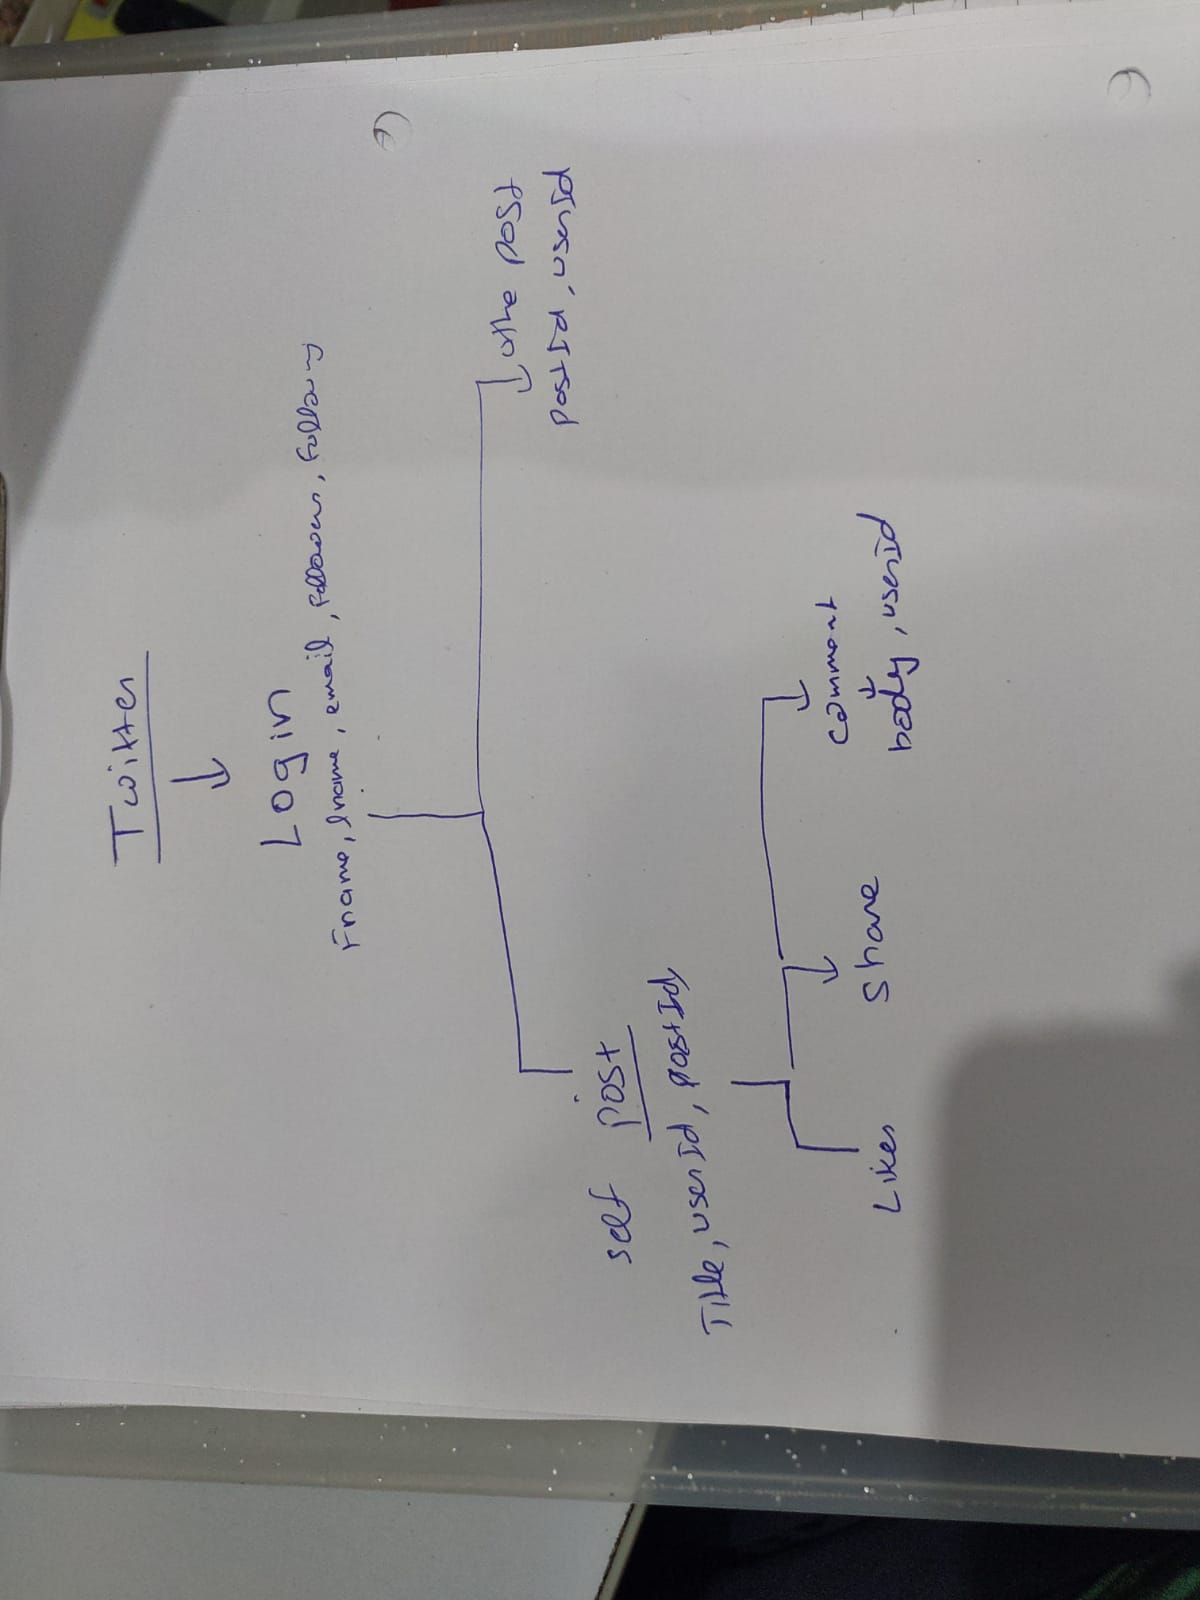 Twitter
Login
Fname, lname, email, followers, following
self post
othe post
Title, userId, postId
postId, userId
Likes
Share
comment
body, userid